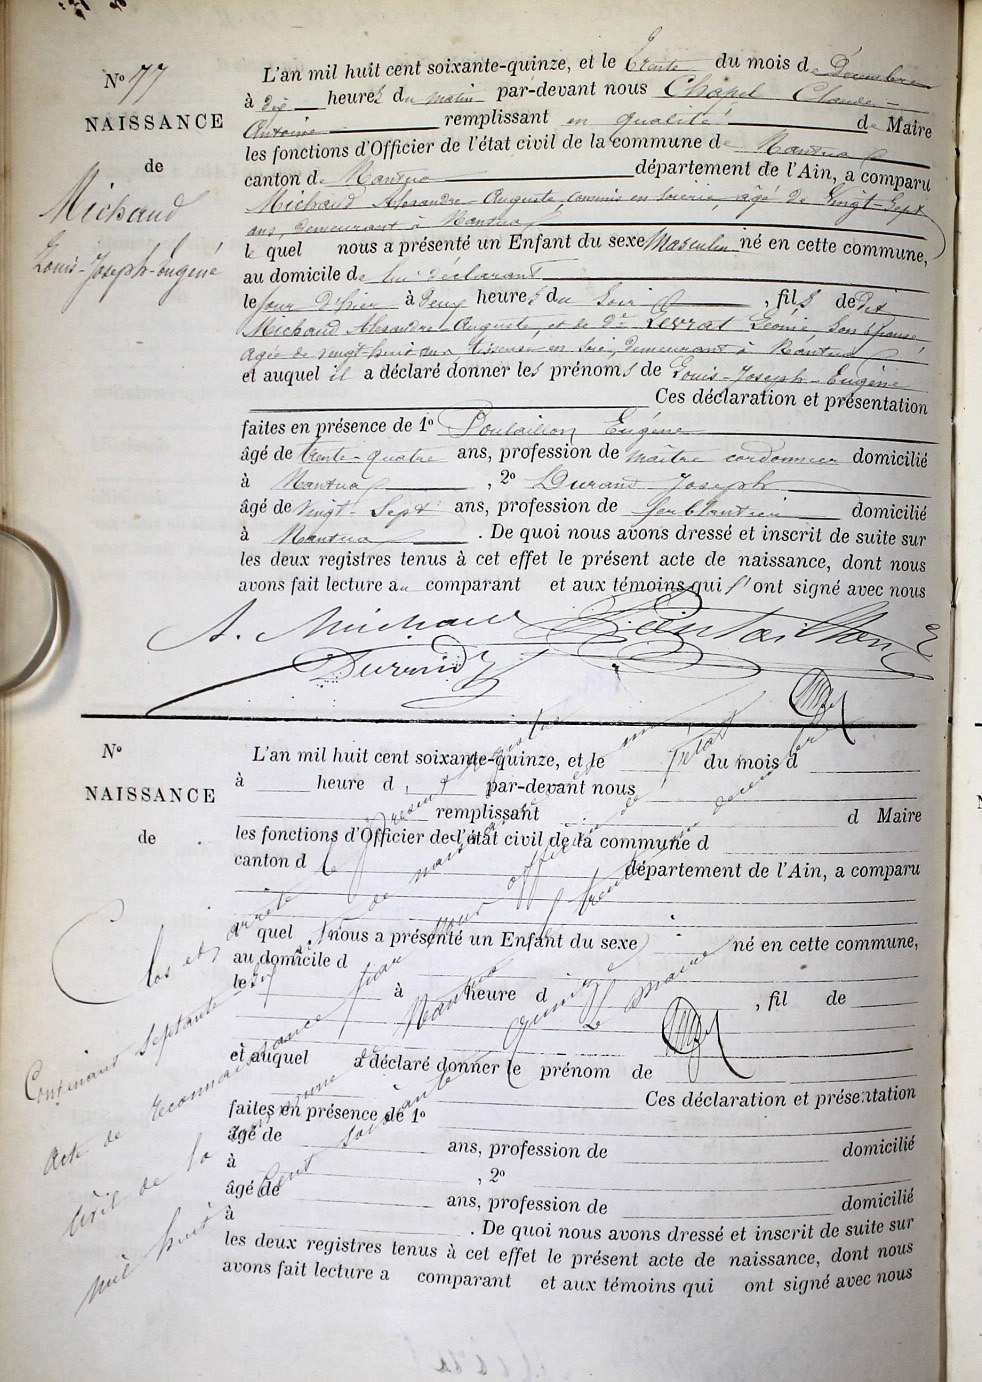 N° 77
NAISSANCE
de
Michaud
Louis-Joseph-Eugène
L'an mil huit cent soixante-quinze, et le trente du mois de Décembre
à dix heures du matin par-devant nous Chapel Claude-
Antoine remplissant en qualité de Maire
les fonctions d'Officier de l'état civil de la commune de Nantua
canton de Nantua département de l'Ain, a comparu
Michaud Alexandre-Auguste, commis en soierie, âgé de vingt-sept
ans, demeurant à Nantua
le quel nous a présenté un Enfant du sexe Masculin né en cette commune,
au domicile de lui déclarant
le jour d'hier à deux heures du soir, fils de dit
Michaud Alexandre-Auguste, et de De Levrat Léonie son épouse
agée de vingt huit ans tisseuse en soie, demeurant à Nantua
et auquel il a déclaré donner les prénoms de Louis-Joseph-Eugène
Ces déclaration et présentation
faites en présence de 1° Poutaillon Eugène
âgé de trente-quatre ans, profession de maître cordonnier domicilié
à Nantua, 2° Durand Joseph
âgé de vingt-sept ans, profession de ferblantier domicilié
à Nantua. De quoi nous avons dressé et inscrit de suite sur
les deux registres tenus à cet effet le présent acte de naissance, dont nous
avons fait lecture au comparant et aux témoins qui l'ont signé avec nous
A. Michaud Poutaillon E
Durand J
N°
NAISSANCE
de
L'an mil huit cent soixante-quinze, et le du mois d
à heure d par-devant nous
remplissant d Maire
les fonctions d'Officier de l'état civil de la commune d
canton d département de l'Ain, a comparu
l quel nous a présenté un Enfant du sexe né en cette commune,
au domicile d
le à heure d , fil de
et auquel a déclaré donner le prénom de
Ces déclaration et présentation
faites en présence de 1°
âgé de ans, profession de domicilié
à , 2°
âgé de ans, profession de domicilié
à . De quoi nous avons dressé et inscrit de suite sur
les deux registres tenus à cet effet le présent acte de naissance, dont nous
avons fait lecture a comparant et aux témoins qui ont signé avec nous
Clos et arrêté le présent registre
Contenant septante sept actes de naissance et un
acte de reconnaissance par nous officier de l'état
civil de la commune de Nantua le trente un décembre
mil huit cent soixante quinze
Le Maire